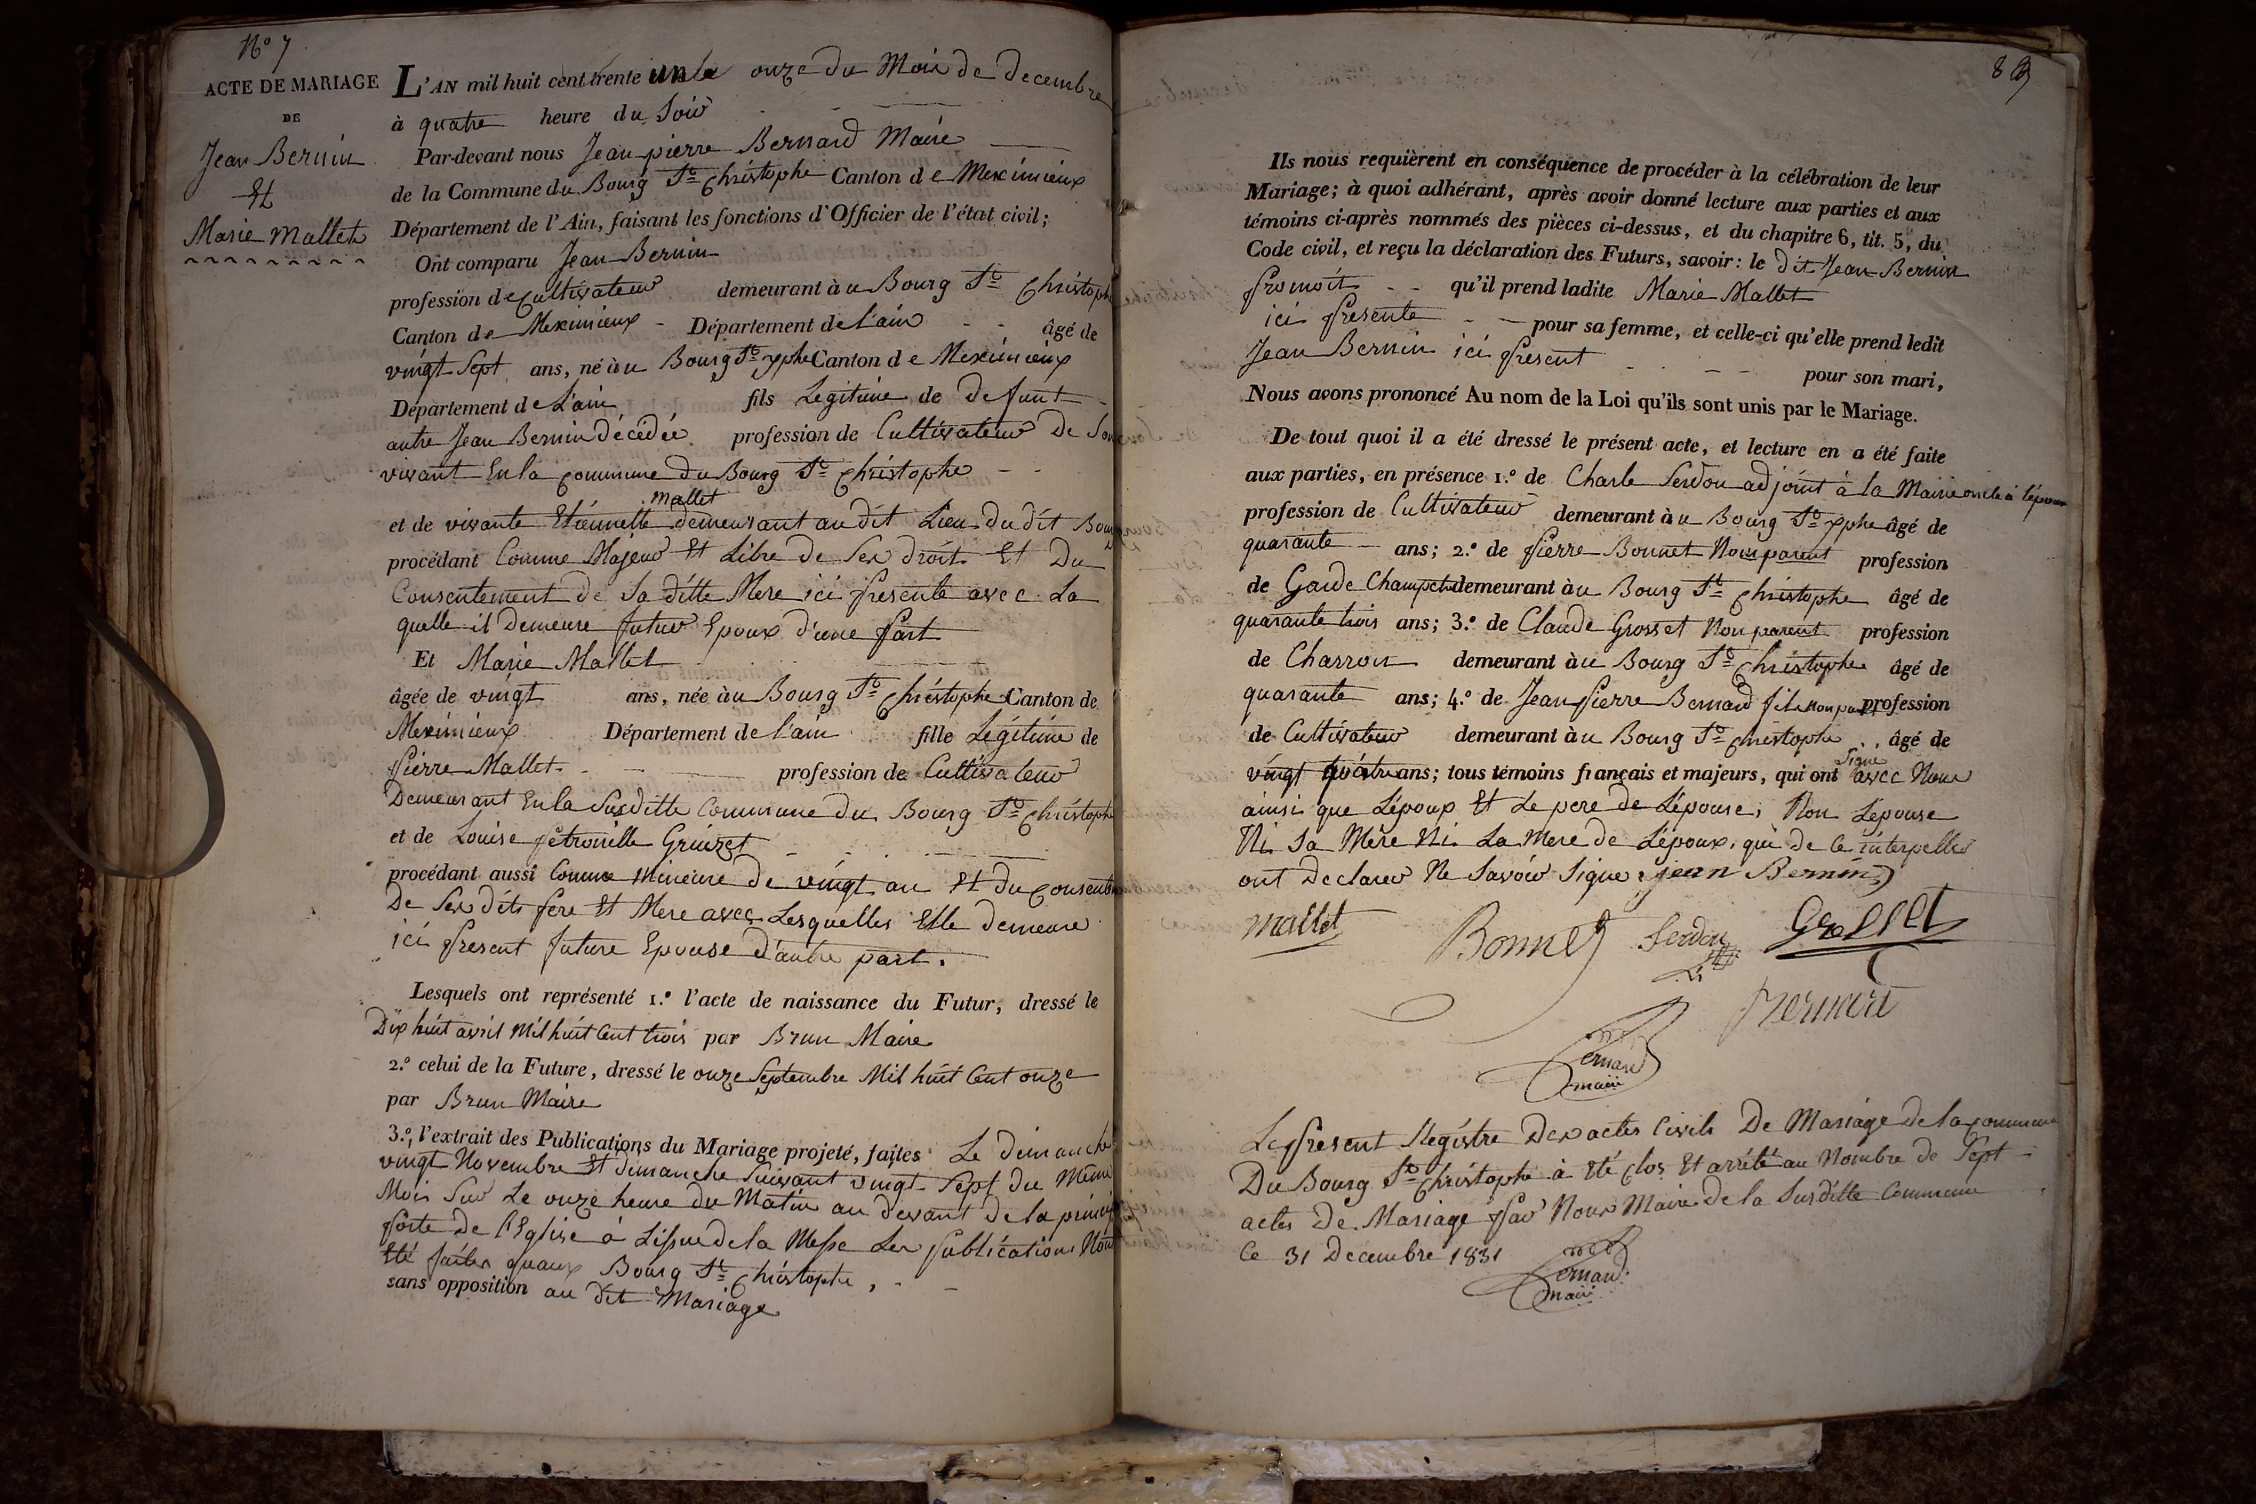 N.o 7
ACTE DE MARIAGE
DE
Jean Bernin
Et
Marie Mallet
L'AN mil huit cent trente un le onze du Mois de decembre
à quatre heure du Soir
Par-devant nous Jean pierre Bernard Maire
de la Commune du Bourg St Christophe Canton de Meximieux
Département de l'Ain, faisant les fonctions d'Officier de l'état civil;
Ont comparu Jean Bernin
profession de Cultivateur demeurant à u Bourg St Christophe
Canton de Meximieux - Département de l'ain - - âgé de
vingt Sept ans, né à u Bourg St xphe Canton de Meximieux
Département de L'ain fils Legitime de defunt
autre Jean Bernin décédée profession de Cultivateur De Son
vivant En la commune du Bourg St Christophe - -
mallet
et de vivante Etiennette demeurant au dit Lieu du dit Bourg
procédant Comme Majeur Et Libre de Ses droit Et Du
Consentement de Sa ditte Mere ici presente avec La
quelle il Demeure futur Epoux d'une part
Et Marie Mallet
âgée de vingt ans, née à u Bourg St Christophe Canton de
Meximieux Département de l'ain fille Légitime de
pierre Mallet profession de Cultivateur
Demeurant En la Susditte Commune du Bourg St Christophe
et de Louise pétronille Gruizet
procédant aussi Comme Mineure De vingt an Et du Consent
De Ses dits pere Et Mere avec Lesquelles Elle demeure
ici present future Epouse d'autre part.
Lesquels ont représenté 1.º l'acte de naissance du Futur, dressé le
Dix huit avril Mil huit Cent trois par Brun Maire
2.º celui de la Future, dressé le onze Septembre Mil huit Cent onze
par Brun Maire
3.º, l'extrait des Publications du Mariage projeté, faites Le dimanche
vingt Novembre Et dimanche Suivant vingt Sept du Même
Mois Sur Le onze heure du Matin au devant de la princip
porte De l'Eglise à L'issue de la Messe Les publications N'ont
Eté faites quaux Bourg St Christophe, -
sans opposition au dit Mariage
83
Ils nous requièrent en conséquence de procéder à la célébration de leur
Mariage; à quoi adhérant, après avoir donné lecture aux parties et aux
témoins ci-après nommés des pièces ci-dessus, et du chapitre 6, tit. 5, du
Code civil, et reçu la déclaration des Futurs, savoir: le dit Jean Bernin
promoit - - qu'il prend ladite Marie Mallet
ici presente - - pour sa femme, et celle-ci qu'elle prend ledit
Jean Bernin ici present - - - pour son mari,
Nous avons prononcé Au nom de la Loi qu'ils sont unis par le Mariage.
De tout quoi il a été dressé le présent acte, et lecture en a été faite
aux parties, en présence 1.º de Charle Serdon adjoint à la Mairie oncle à l'épouse
profession de Cultivateur demeurant à u Bourg St xphe âgé de
quarante - ans; 2.º de pierre Bonnet Non parent profession
de Garde Champetre demeurant à u Bourg St Christophe âgé de
quarante trois ans; 3.º de Claude Grosset Non parent profession
de Charron demeurant à u Bourg St Christophe âgé de
quarante ans; 4.º de Jean pierre Bernard fils non parent profession
de Cultivateur demeurant à u Bourg St Christophe . . âgé de
Signe
vingt quatre ans; tous témoins français et majeurs, qui ont avec Nous
ainsi que L'époux Et Le pere de L'épouse, Non L'epouse
Ni Sa Mère Ni La Mere de L'époux, qui de ce interpellés
ont Declarer Ne Savoir Signe Jean Bernin
mallet
Bonnet Serdon Grosset
Bernard
Bernard
maire
Le present Régistre Des actes Civils De Mariage de la commune
Du Bourg St Christophe à Eté Clos Et arrêté au Nombre de Sept
actes De Mariage par Nous Maire de la Susditte Commune
Ce 31 Decembre 1831
Bernard
maire